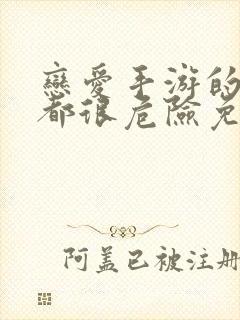 戀愛手游的
都很危險免
阿蓋已被注册